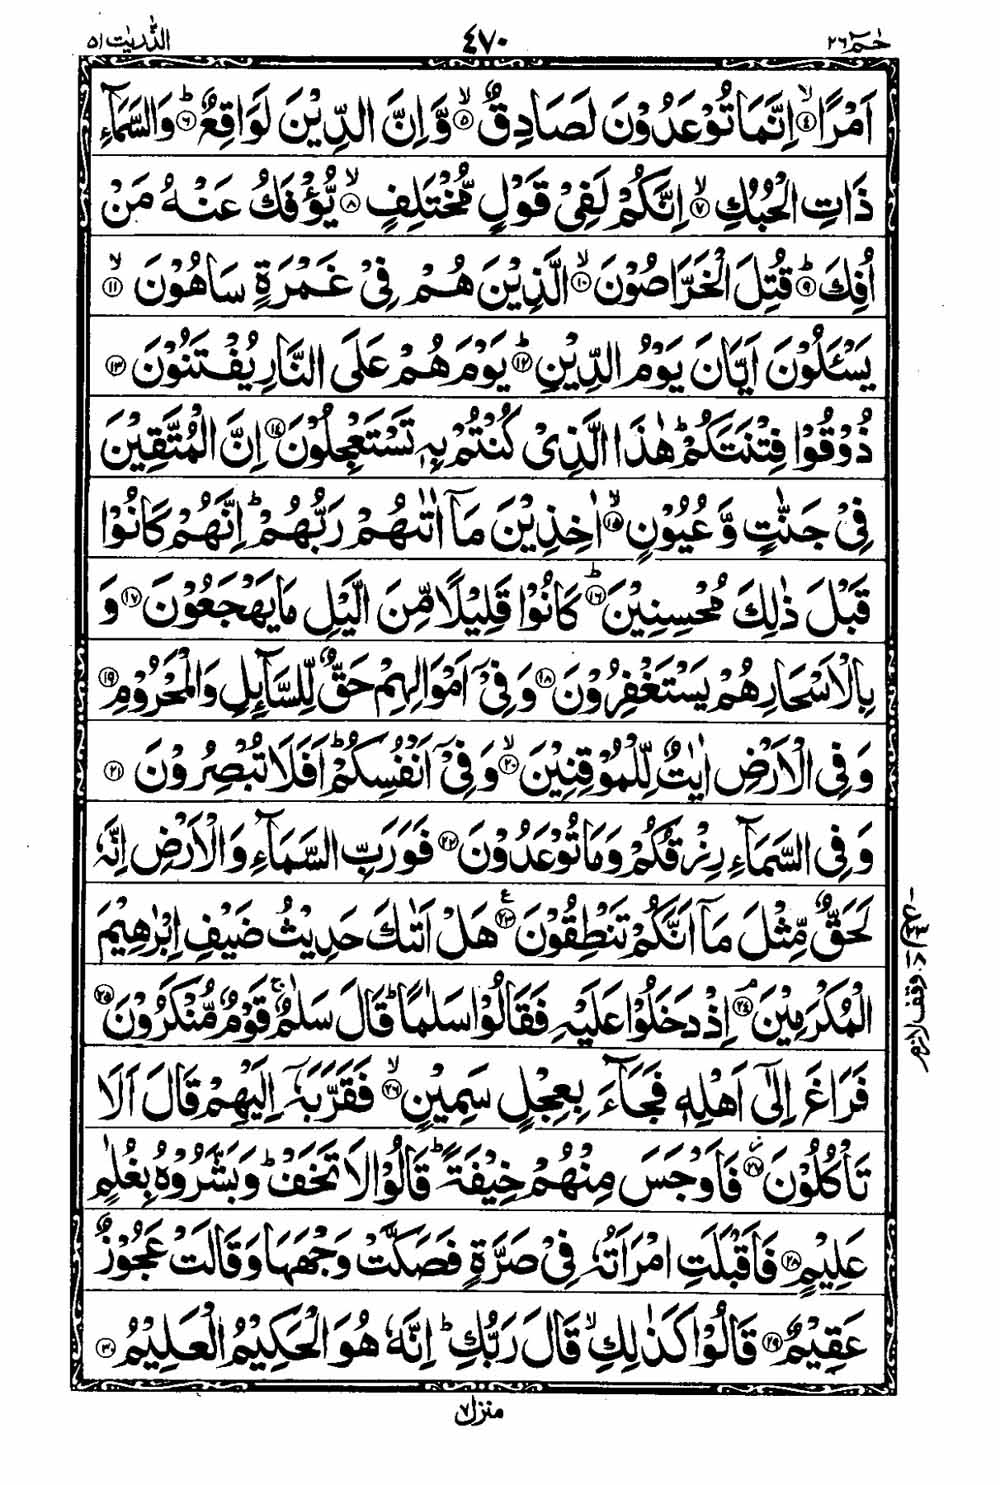 حٰمٓ ٢٦ ٤٧٠ الذّٰریٰت ٥١
اَمْرًا ۙ﴿۴﴾ اِنَّمَا تُوْعَدُوْنَ لَصَادِقٌ ۙ﴿۵﴾ وَّ اِنَّ الدِّیْنَ لَوَاقِعٌ ؕ﴿۶﴾ وَالسَّمَآءِ
ذَاتِ الْحُبُكِ ۙ﴿۷﴾ اِنَّكُمْ لَفِیْ قَوْلٍ مُّخْتَلِفٍ ۙ﴿۸﴾ یُّؤْفَكُ عَنْهُ مَنْ
اُفِكَ ؕ﴿۹﴾ قُتِلَ الْخَرّٰصُوْنَ ۙ﴿۱۰﴾ الَّذِیْنَ هُمْ فِیْ غَمْرَةٍ سَاهُوْنَ ۙ﴿۱۱﴾
یَسْـَٔلُوْنَ اَیَّانَ یَوْمُ الدِّیْنِ ؕ﴿۱۲﴾ یَوْمَ هُمْ عَلَی النَّارِ یُفْتَنُوْنَ ﴿۱۳﴾
ذُوْقُوْا فِتْنَتَكُمْ ؕ هٰذَا الَّذِیْ كُنْتُمْ بِهٖ تَسْتَعْجِلُوْنَ ﴿۱۴﴾ اِنَّ الْمُتَّقِیْنَ
فِیْ جَنّٰتٍ وَّ عُیُوْنٍ ۙ﴿۱۵﴾ اٰخِذِیْنَ مَاۤ اٰتٰىهُمْ رَبُّهُمْ ؕ اِنَّهُمْ كَانُوْا
قَبْلَ ذٰلِكَ مُحْسِنِیْنَ ؕ﴿۱۶﴾ كَانُوْا قَلِیْلًا مِّنَ الَّیْلِ مَا یَهْجَعُوْنَ ﴿۱۷﴾ وَ
بِالْاَسْحَارِ هُمْ یَسْتَغْفِرُوْنَ ﴿۱۸﴾ وَ فِیْۤ اَمْوَالِهِمْ حَقٌّ لِّلسَّآىِٕلِ وَالْمَحْرُوْمِ ﴿۱۹﴾
وَ فِی الْاَرْضِ اٰیٰتٌ لِّلْمُوْقِنِیْنَ ۙ﴿۲۰﴾ وَ فِیْۤ اَنْفُسِكُمْ ؕ اَفَلَا تُبْصِرُوْنَ ﴿۲۱﴾
وَ فِی السَّمَآءِ رِزْقُكُمْ وَمَا تُوْعَدُوْنَ ﴿۲۲﴾ فَوَرَبِّ السَّمَآءِ وَالْاَرْضِ اِنَّهٗ
لَحَقٌّ مِّثْلَ مَاۤ اَنَّكُمْ تَنْطِقُوْنَ ﴿۲۳﴾ هَلْ اَتٰىكَ حَدِیْثُ ضَیْفِ اِبْرٰهِیْمَ
الْمُكْرَمِیْنَ ۘ﴿۲۴﴾ اِذْ دَخَلُوْا عَلَیْهِ فَقَالُوْا سَلٰمًا ؕ قَالَ سَلٰمٌ ۚ قَوْمٌ مُّنْكَرُوْنَ ﴿۲۵﴾
فَرَاغَ اِلٰۤی اَهْلِهٖ فَجَآءَ بِعِجْلٍ سَمِیْنٍ ۙ﴿۲۶﴾ فَقَرَّبَهٗۤ اِلَیْهِمْ قَالَ اَلَا
تَاْكُلُوْنَ ؗ﴿۲۷﴾ فَاَوْجَسَ مِنْهُمْ خِیْفَةً ؕ قَالُوْا لَا تَخَفْ ؕ وَ بَشَّرُوْهُ بِغُلٰمٍ
عَلِیْمٍ ﴿۲۸﴾ فَاَقْبَلَتِ امْرَاَتُهٗ فِیْ صَرَّةٍ فَصَكَّتْ وَجْهَهَا وَقَالَتْ عَجُوْزٌ
عَقِیْمٌ ﴿۲۹﴾ قَالُوْا كَذٰلِكِ ۙ قَالَ رَبُّكِ ؕ اِنَّهٗ هُوَ الْحَكِیْمُ الْعَلِیْمُ ﴿۳۰﴾
منزل ٧
وقف لازم